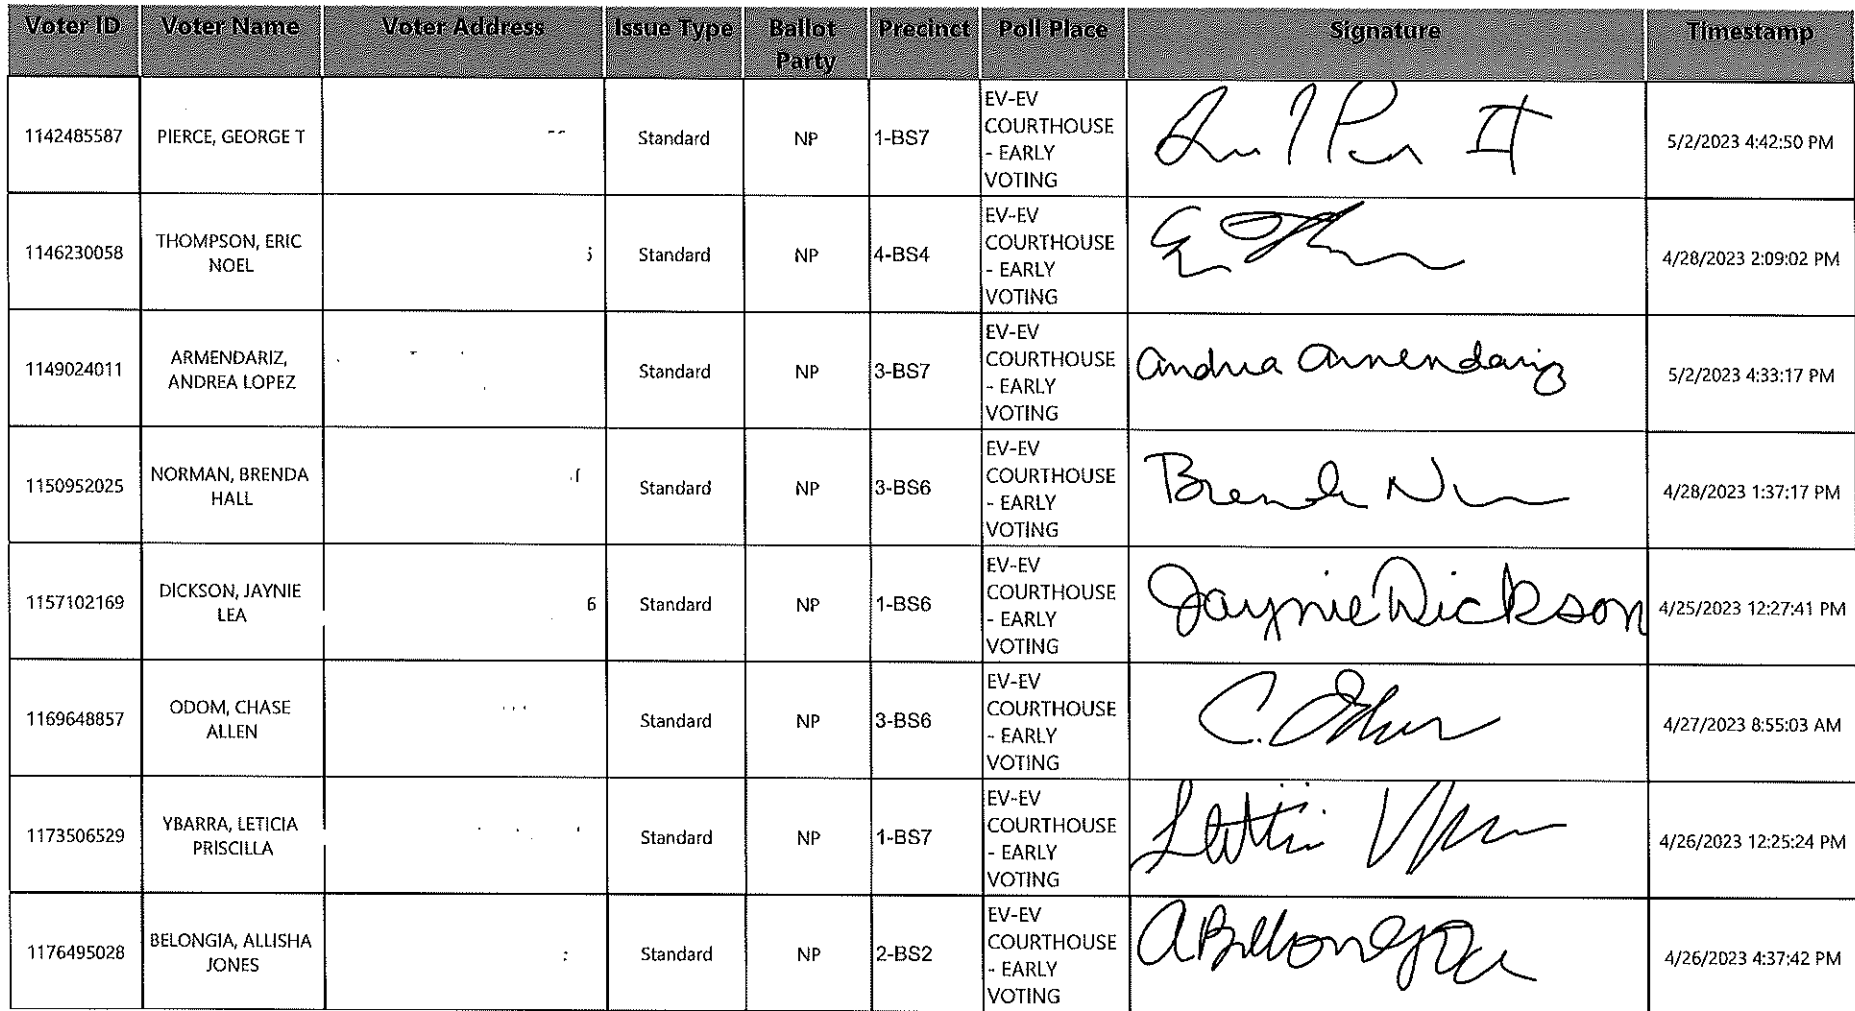 Voter ID Voter Name Voter Address Issue Type Ballot Party Precinct Poll Place Signature Timestamp
1142485587 PIERCE, GEORGE T Standard NP 1-BS7 EV-EV COURTHOUSE - EARLY VOTING 5/2/2023 4:42:50 PM
1146230058 THOMPSON, ERIC NOEL Standard NP 4-BS4 EV-EV COURTHOUSE - EARLY VOTING 4/28/2023 2:09:02 PM
1149024011 ARMENDARIZ, ANDREA LOPEZ Standard NP 3-BS7 EV-EV COURTHOUSE - EARLY VOTING Andrea Armendariz 5/2/2023 4:33:17 PM
1150952025 NORMAN, BRENDA HALL Standard NP 3-BS6 EV-EV COURTHOUSE - EARLY VOTING Brenda 4/28/2023 1:37:17 PM
1157102169 DICKSON, JAYNIE LEA 6 Standard NP 1-BS6 EV-EV COURTHOUSE - EARLY VOTING Jaynie Dickson 4/25/2023 12:27:41 PM
1169648857 ODOM, CHASE ALLEN Standard NP 3-BS6 EV-EV COURTHOUSE - EARLY VOTING C. Odom 4/27/2023 8:55:03 AM
1173506529 YBARRA, LETICIA PRISCILLA Standard NP 1-BS7 EV-EV COURTHOUSE - EARLY VOTING 4/26/2023 12:25:24 PM
1176495028 BELONGIA, ALLISHA JONES Standard NP 2-BS2 EV-EV COURTHOUSE - EARLY VOTING ABelongia 4/26/2023 4:37:42 PM